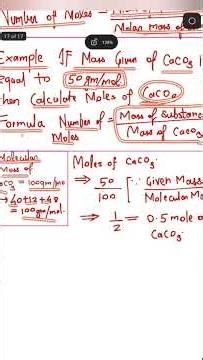 Number of Moles =
Molar mass of
17 of 17
138%
Example If Mass Given of CaCO3 i
equal to 50gm/mol.
then Calculate Moles of CaCO3
Formula Number of Moles = Mass of Substance
Mass of CaCO3
Molecular
Mass of
CaCO3 = 100gm/mo
→ 40+12+48
= 100gm/mol.
Moles of CaCO3
⇒ 50/100 [∵ Given Mass
Molecular Ma
⇒ 1/2 = 0.5 mole o
CaCO3